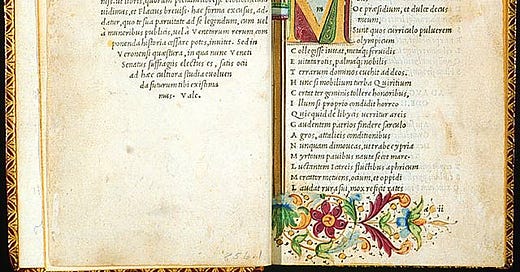 uidimus, et Flaccus breuiss- hac forma excusus, ad,
datur, quo te sua paruitate ad se legendum, cum uel
à muneribus publicis, uel à Venetarum rerum com
ponenda historia cessare potes, inuitet. Sed in
Veronensi quæstura, in qua nunc Veneti
Senatus suffragiis electus es, satis ocii
ad hæc cultiora studia euoluen
da futurum tibi existima
mus. Vale.
M
O et præsidium, et dulce decus
meum,
Sunt quos curriculo puluerem
olympicum
C ollegisse iuuat, metaq; feruidis
E uitata rotis, palmaq; nobilis
T errarum dominos euehit ad deos.
H unc si mobilium turba Quiritium
C ertat ter geminis tollere honoribus,
I llum si proprio condidit horreo
Q uicquid de libycis uerritur areis
G audentem patrios findere sarculo
A gros, attalicis conditionibus
N unquam dimoueas, ut trabe cypria
M yrtoum pauidus nauta secet mare.
L uctantem Icareis fluctibus aphricum
M ercator metuens, ocium, et oppidi
L audat rura sui, mox reficit rates
a ii